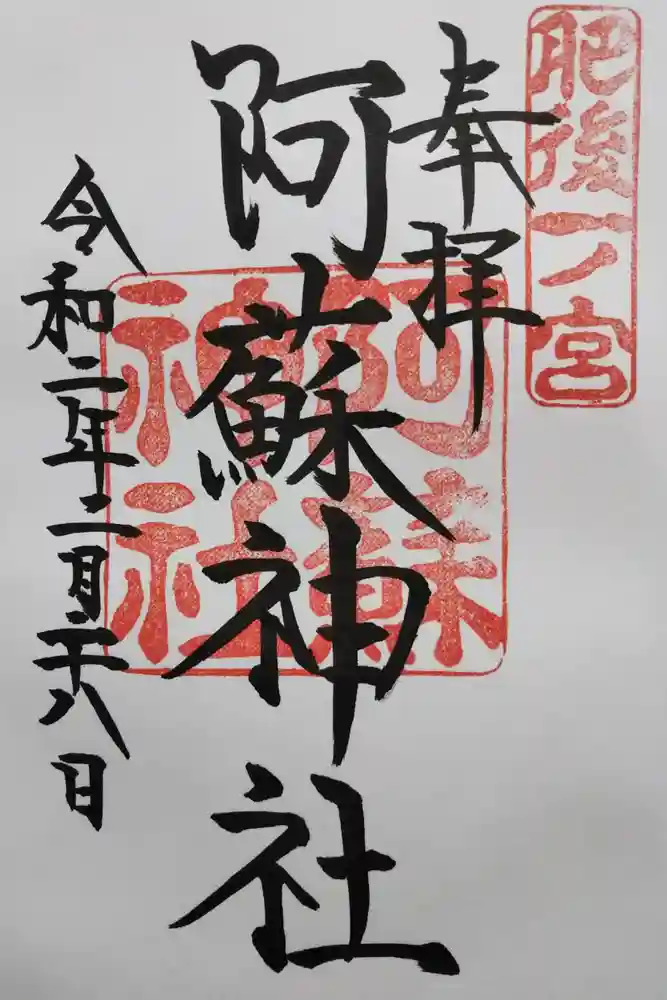 肥後一ノ宮
奉拝
阿蘇神社
阿蘇神社
令和二年二月二十八日